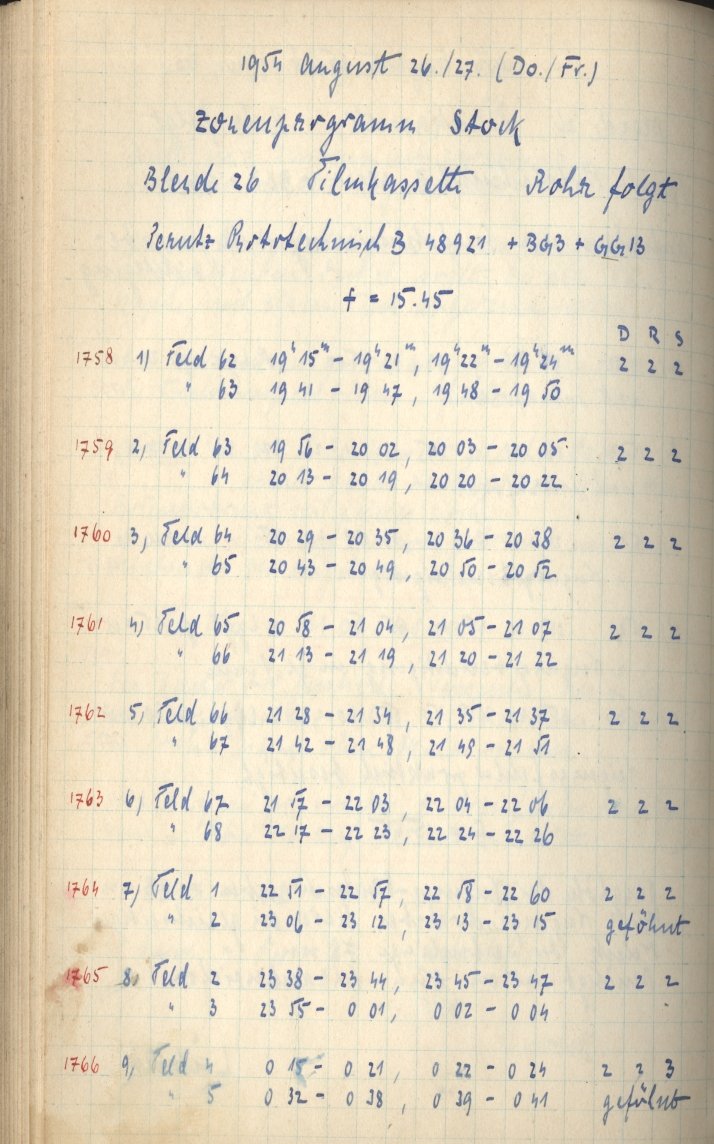 1954 August 26./27. (Do./Fr.)
Zonenprogramm Stock
Blende 26 Filmkassette Rohr folgt
Perutz Phototechnisch B 48921 + BG3 + GG13
f = 15.45
D R S
1758 1) Feld 62 19ʰ15ᵐ – 19ʰ21ᵐ, 19ʰ22ᵐ – 19ʰ24ᵐ 2 2 2
" 63 19 41 – 19 47, 19 48 – 19 50
1759 2, Feld 63 19 56 – 20 02, 20 03 – 20 05 2 2 2
" 64 20 13 – 20 19, 20 20 – 20 22
1760 3, Feld 64 20 29 – 20 35, 20 36 – 20 38 2 2 2
" 65 20 43 – 20 49, 20 50 – 20 52
1761 4, Feld 65 20 58 – 21 04, 21 05 – 21 07 2 2 2
" 66 21 13 – 21 19, 21 20 – 21 22
1762 5, Feld 66 21 28 – 21 34, 21 35 – 21 37 2 2 2
" 67 21 42 – 21 48, 21 49 – 21 51
1763 6, Feld 67 21 57 – 22 03, 22 04 – 22 06 2 2 2
" 68 22 17 – 22 23, 22 24 – 22 26
1764 7, Feld 1 22 51 – 22 57, 22 58 – 22 60 2 2 2
" 2 23 06 – 23 12, 23 13 – 23 15 geföhnt
1765 8, Feld 2 23 38 – 23 44, 23 45 – 23 47 2 2 2
" 3 23 55 – 0 01, 0 02 – 0 04
1766 9, Feld 4 0 15 – 0 21, 0 22 – 0 24 2 2 3
" 5 0 32 – 0 38, 0 39 – 0 41 geföhnt